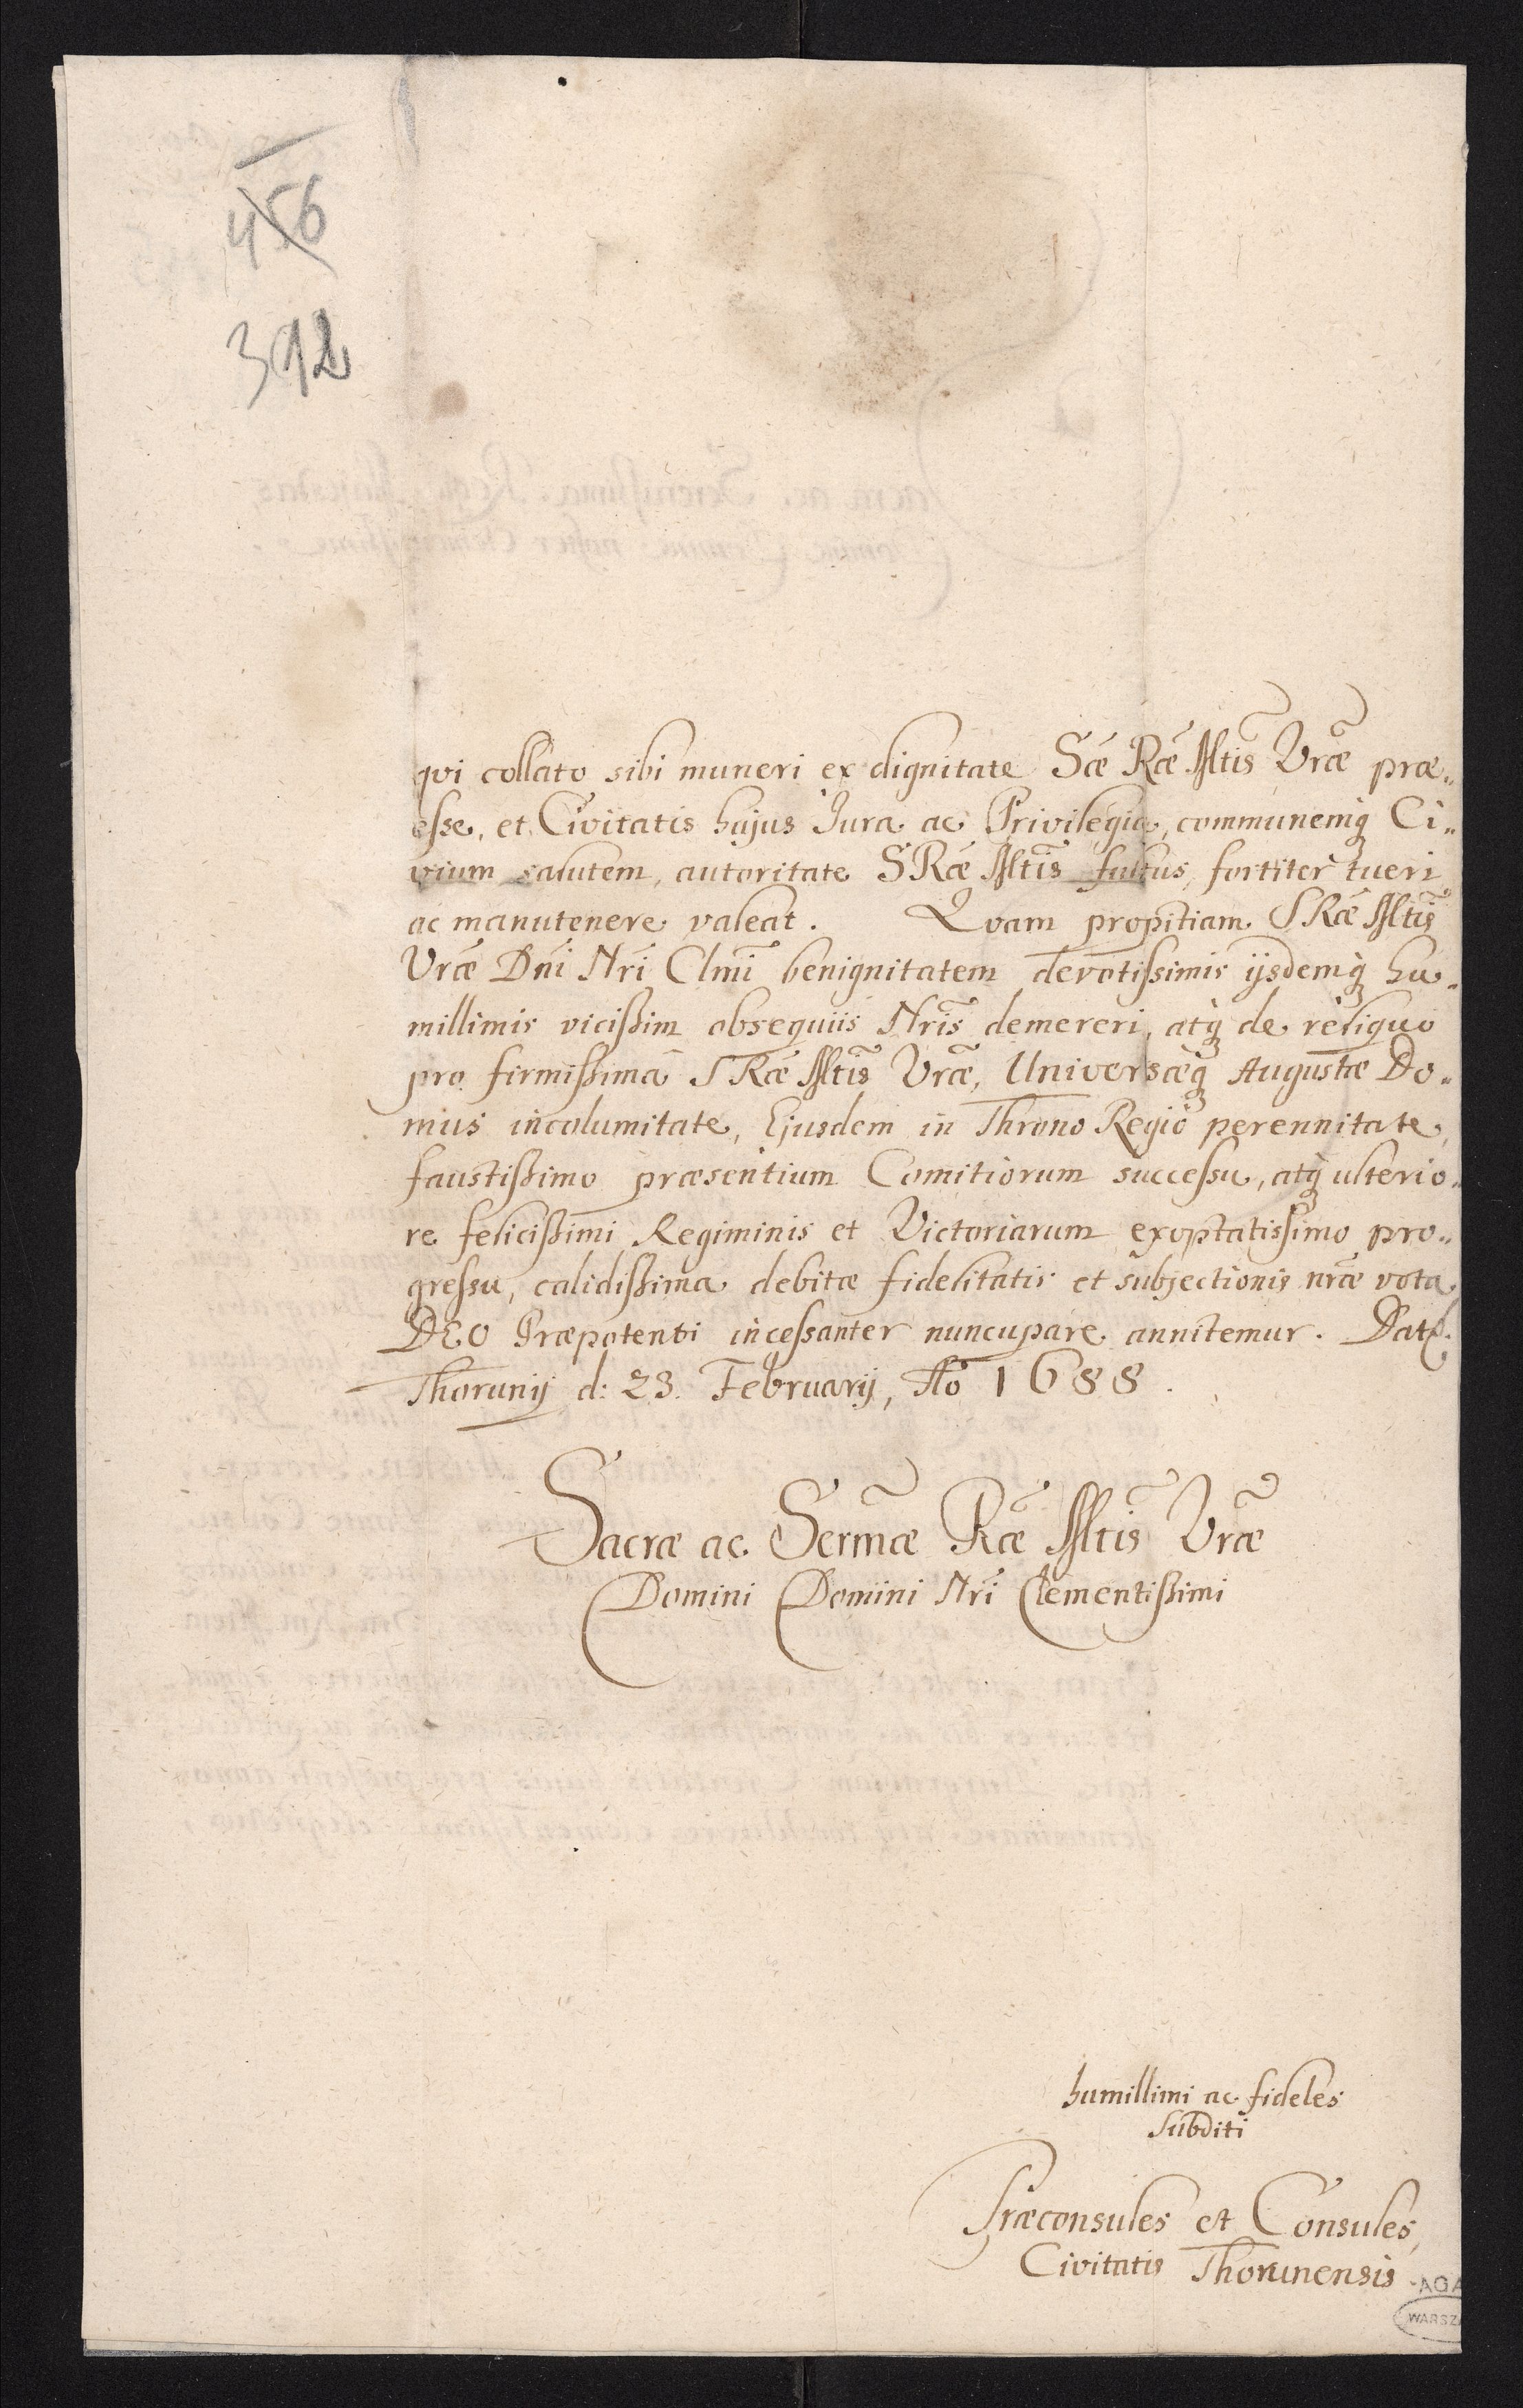 456
392
qvi collato sibi muneri ex dignitate Sæ Ræ Mtis Vræ præ„
esse, et Civitatis hujus Jura ac Privilegia, communemq Ci„
vium salutem, autoritate SRæ Mtis fultus, fortiter tueri
ac manutenere valeat. Qvam propitiam SRæ Mtis
Vræ Dni Nri Clmi benignitatem devotißimis ijsdemq hu„
millimis vicißim obsequiis Nris demereri, atq de reliquo
pro firmißimâ SRæ Mtis Vræ, Universæq Augustæ Do„
mus incolumitate, Ejusdem in Throno Regio perennitate,
faustißimo præsentium Comitiorum successu, atq ulterio„
re felicißimi Regiminis et Victoriarum exoptatissimo pro„
gressu, calidißima debitæ fidelitatis et subjectionis nræ vota
DEO Præpotenti incessanter nuncupare annitemur. Dat.
Thorunij d: 23. Februarij, Ao 1688.
Sacræ ac Sermæ Ræ Mtis Vræ
Domini Domini Nri Clementißimi
humillimi ac fideles
subditi
Præconsules et Consules,
Civitatis Thorunensis
AGA
WARSZ